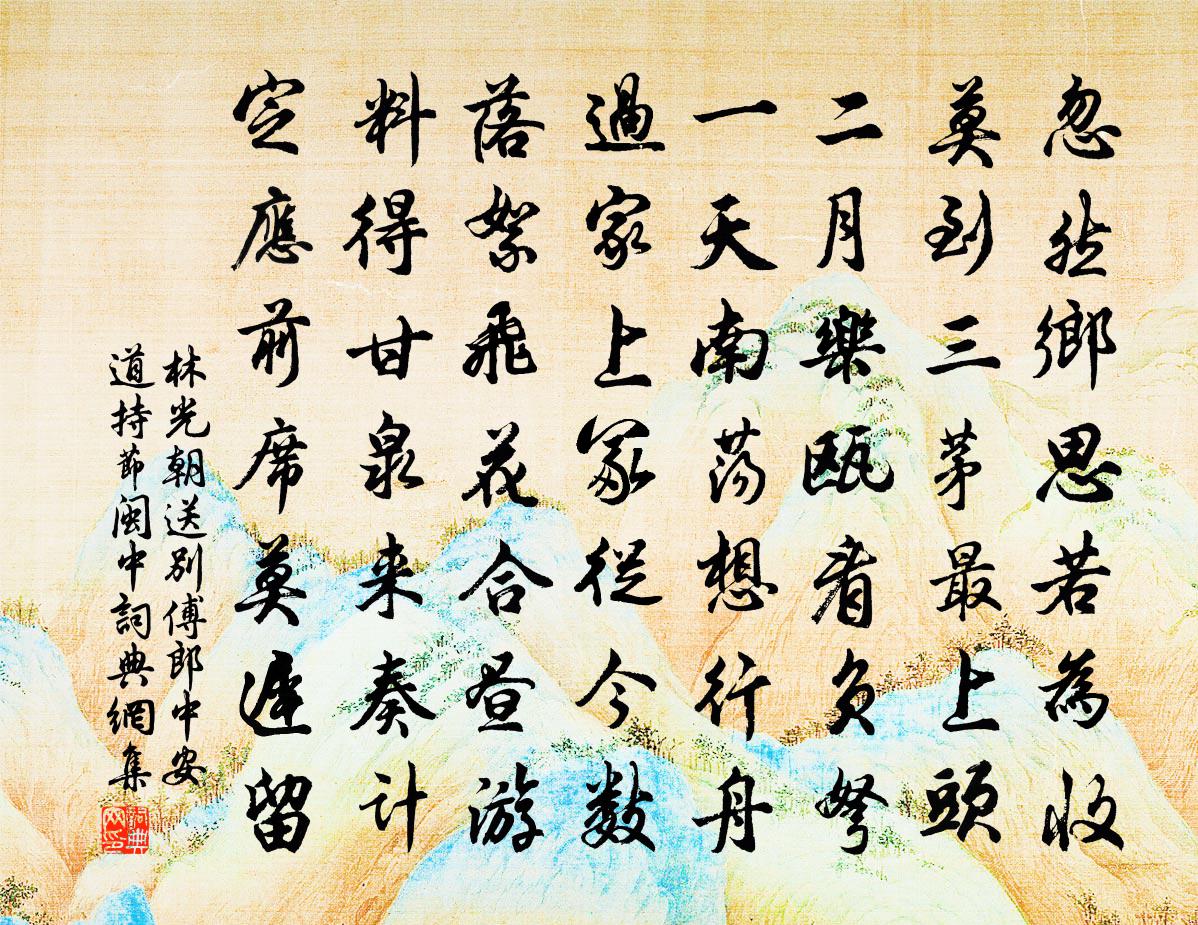 忽然鄉思若為收
莫到三茅最上頭
二月樂甌看負弩
一天南蕩想行舟
過家上冢從今數
落絮飛花合晝游
料得甘泉来奏計
定應前席莫遲留
林光朝送別傅郎中安
道持節閩中詞典網集